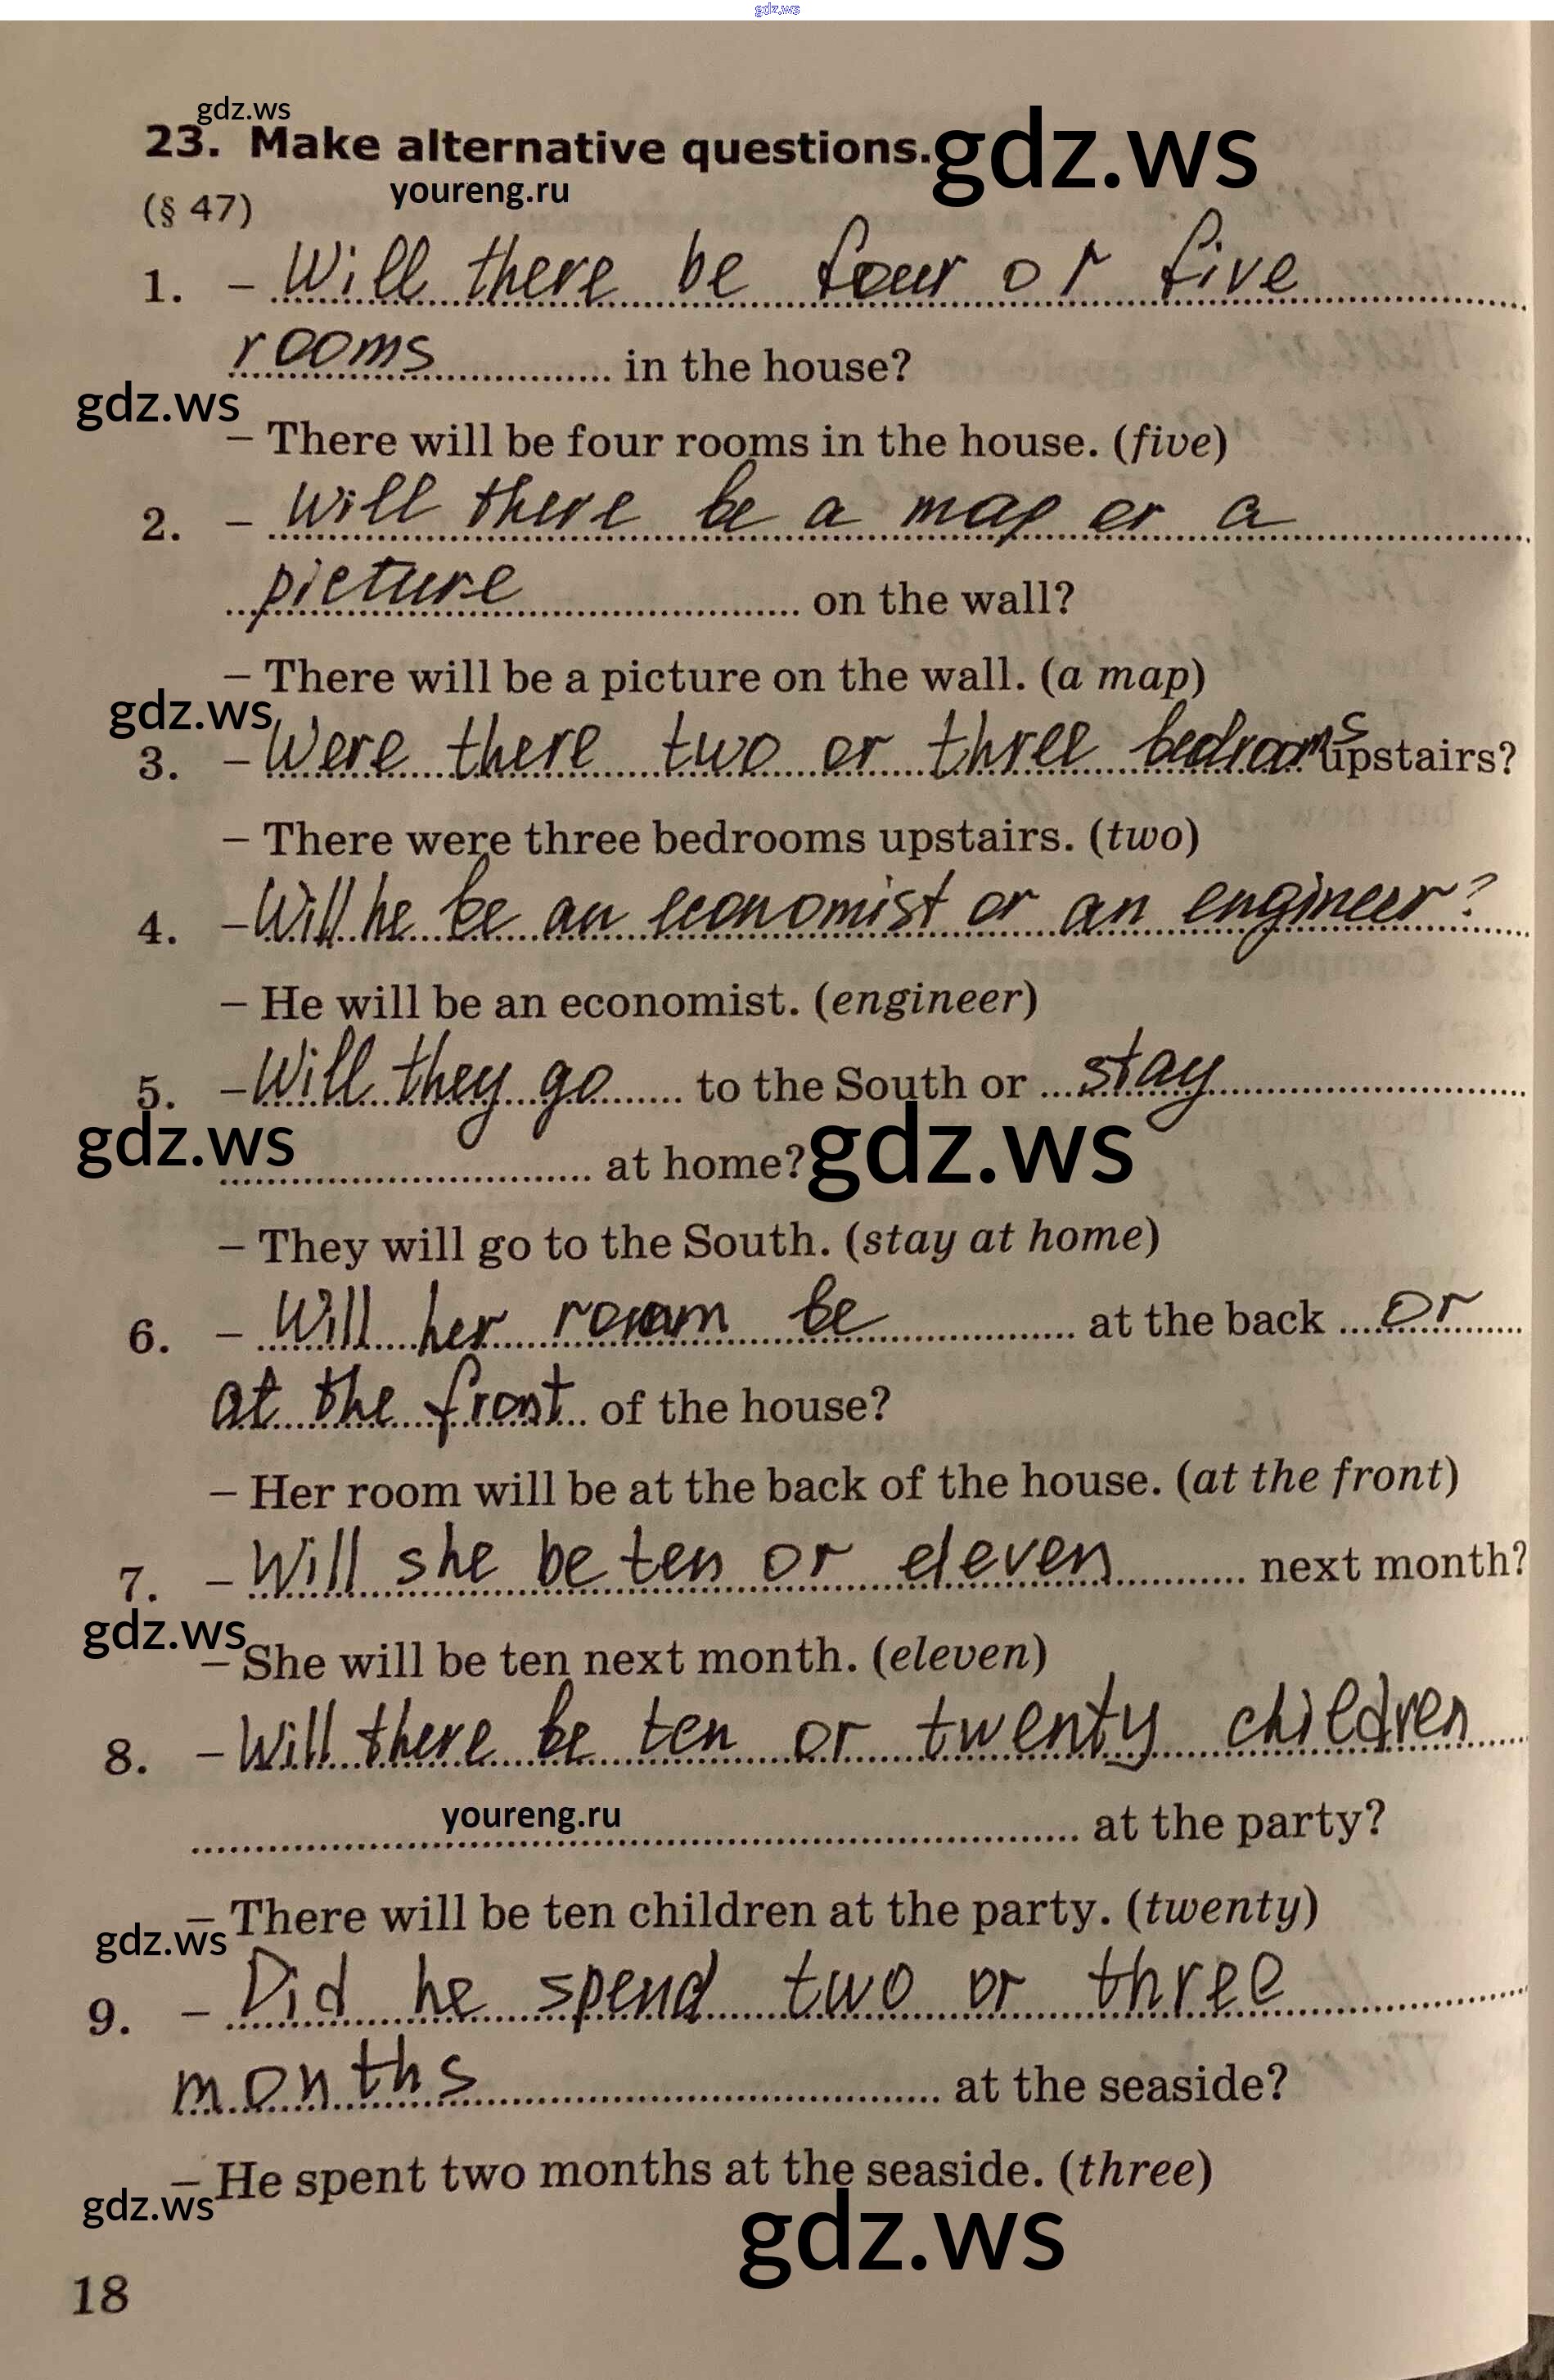 gdz.ws
gdz.ws
23. Make alternative questions.
gdz.ws
youreng.ru
(§ 47)
1. – Will there be four or five
rooms in the house?
gdz.ws
– There will be four rooms in the house. (five)
2. – Will there be a map or a
picture on the wall?
– There will be a picture on the wall. (a map)
gdz.ws
3. – Were there two or three bedrooms upstairs?
– There were three bedrooms upstairs. (two)
4. – Will he be an economist or an engineer?
– He will be an economist. (engineer)
5. – Will they go to the South or stay
gdz.ws
at home?
gdz.ws
– They will go to the South. (stay at home)
6. – Will her room be at the back or
at the front of the house?
– Her room will be at the back of the house. (at the front)
7. – Will she be ten or eleven next month?
gdz.ws
– She will be ten next month. (eleven)
8. – Will there be ten or twenty children
youreng.ru
at the party?
– There will be ten children at the party. (twenty)
gdz.ws
9. – Did he spend two or three
months at the seaside?
– He spent two months at the seaside. (three)
gdz.ws
gdz.ws
18